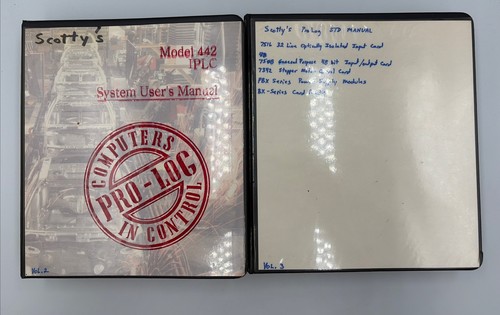 Scotty's
Model 442
IPLC
System User's Manual
COMPUTERS
PRO-LOG
IN CONTROL
VOL. 2
Scotty's ProLog STD MANUAL
32 Line Optically Isolated Input Card
General Purpose 48 bit Input/output Card
7392 Stepper Motor Control Card
Series Power Supply Modules
BX-Series Card
VOL. 3